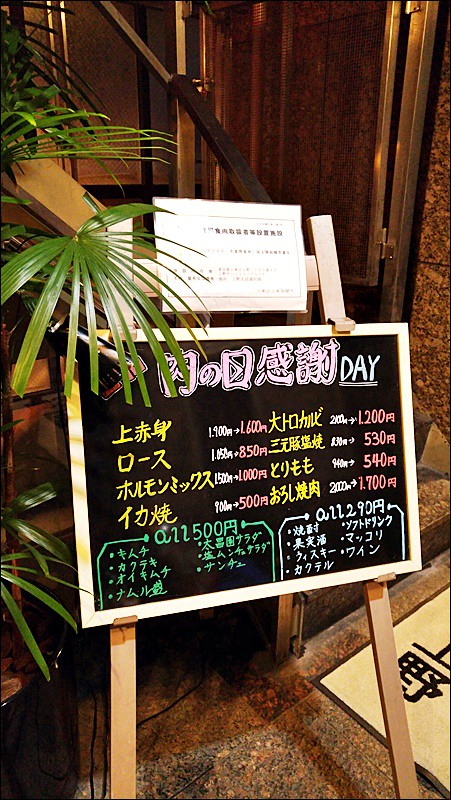 食肉取扱者等設置施設
肉の日感謝DAY
上赤身 1.900円→1.600円
ロース 1.050円→850円
ホルモンミックス 1.500円→1.000円
イカ焼 900円→500円
大トロカルビ 2400円→1.200円
三元豚塩焼 830円→530円
とりもも 940円→540円
おろし焼肉 2.000円→1.700円
all 500円
・キムチ
・カクテキ
・オイキムチ
・ナムル盛
・大昌園サラダ
・塩ムンチュサラダ
・サンチュ
all 290円
・焼酎
・果実酒
・ウィスキー
・カクテル
・ソフトドリンク
・マッコリ
・ワイン
上野